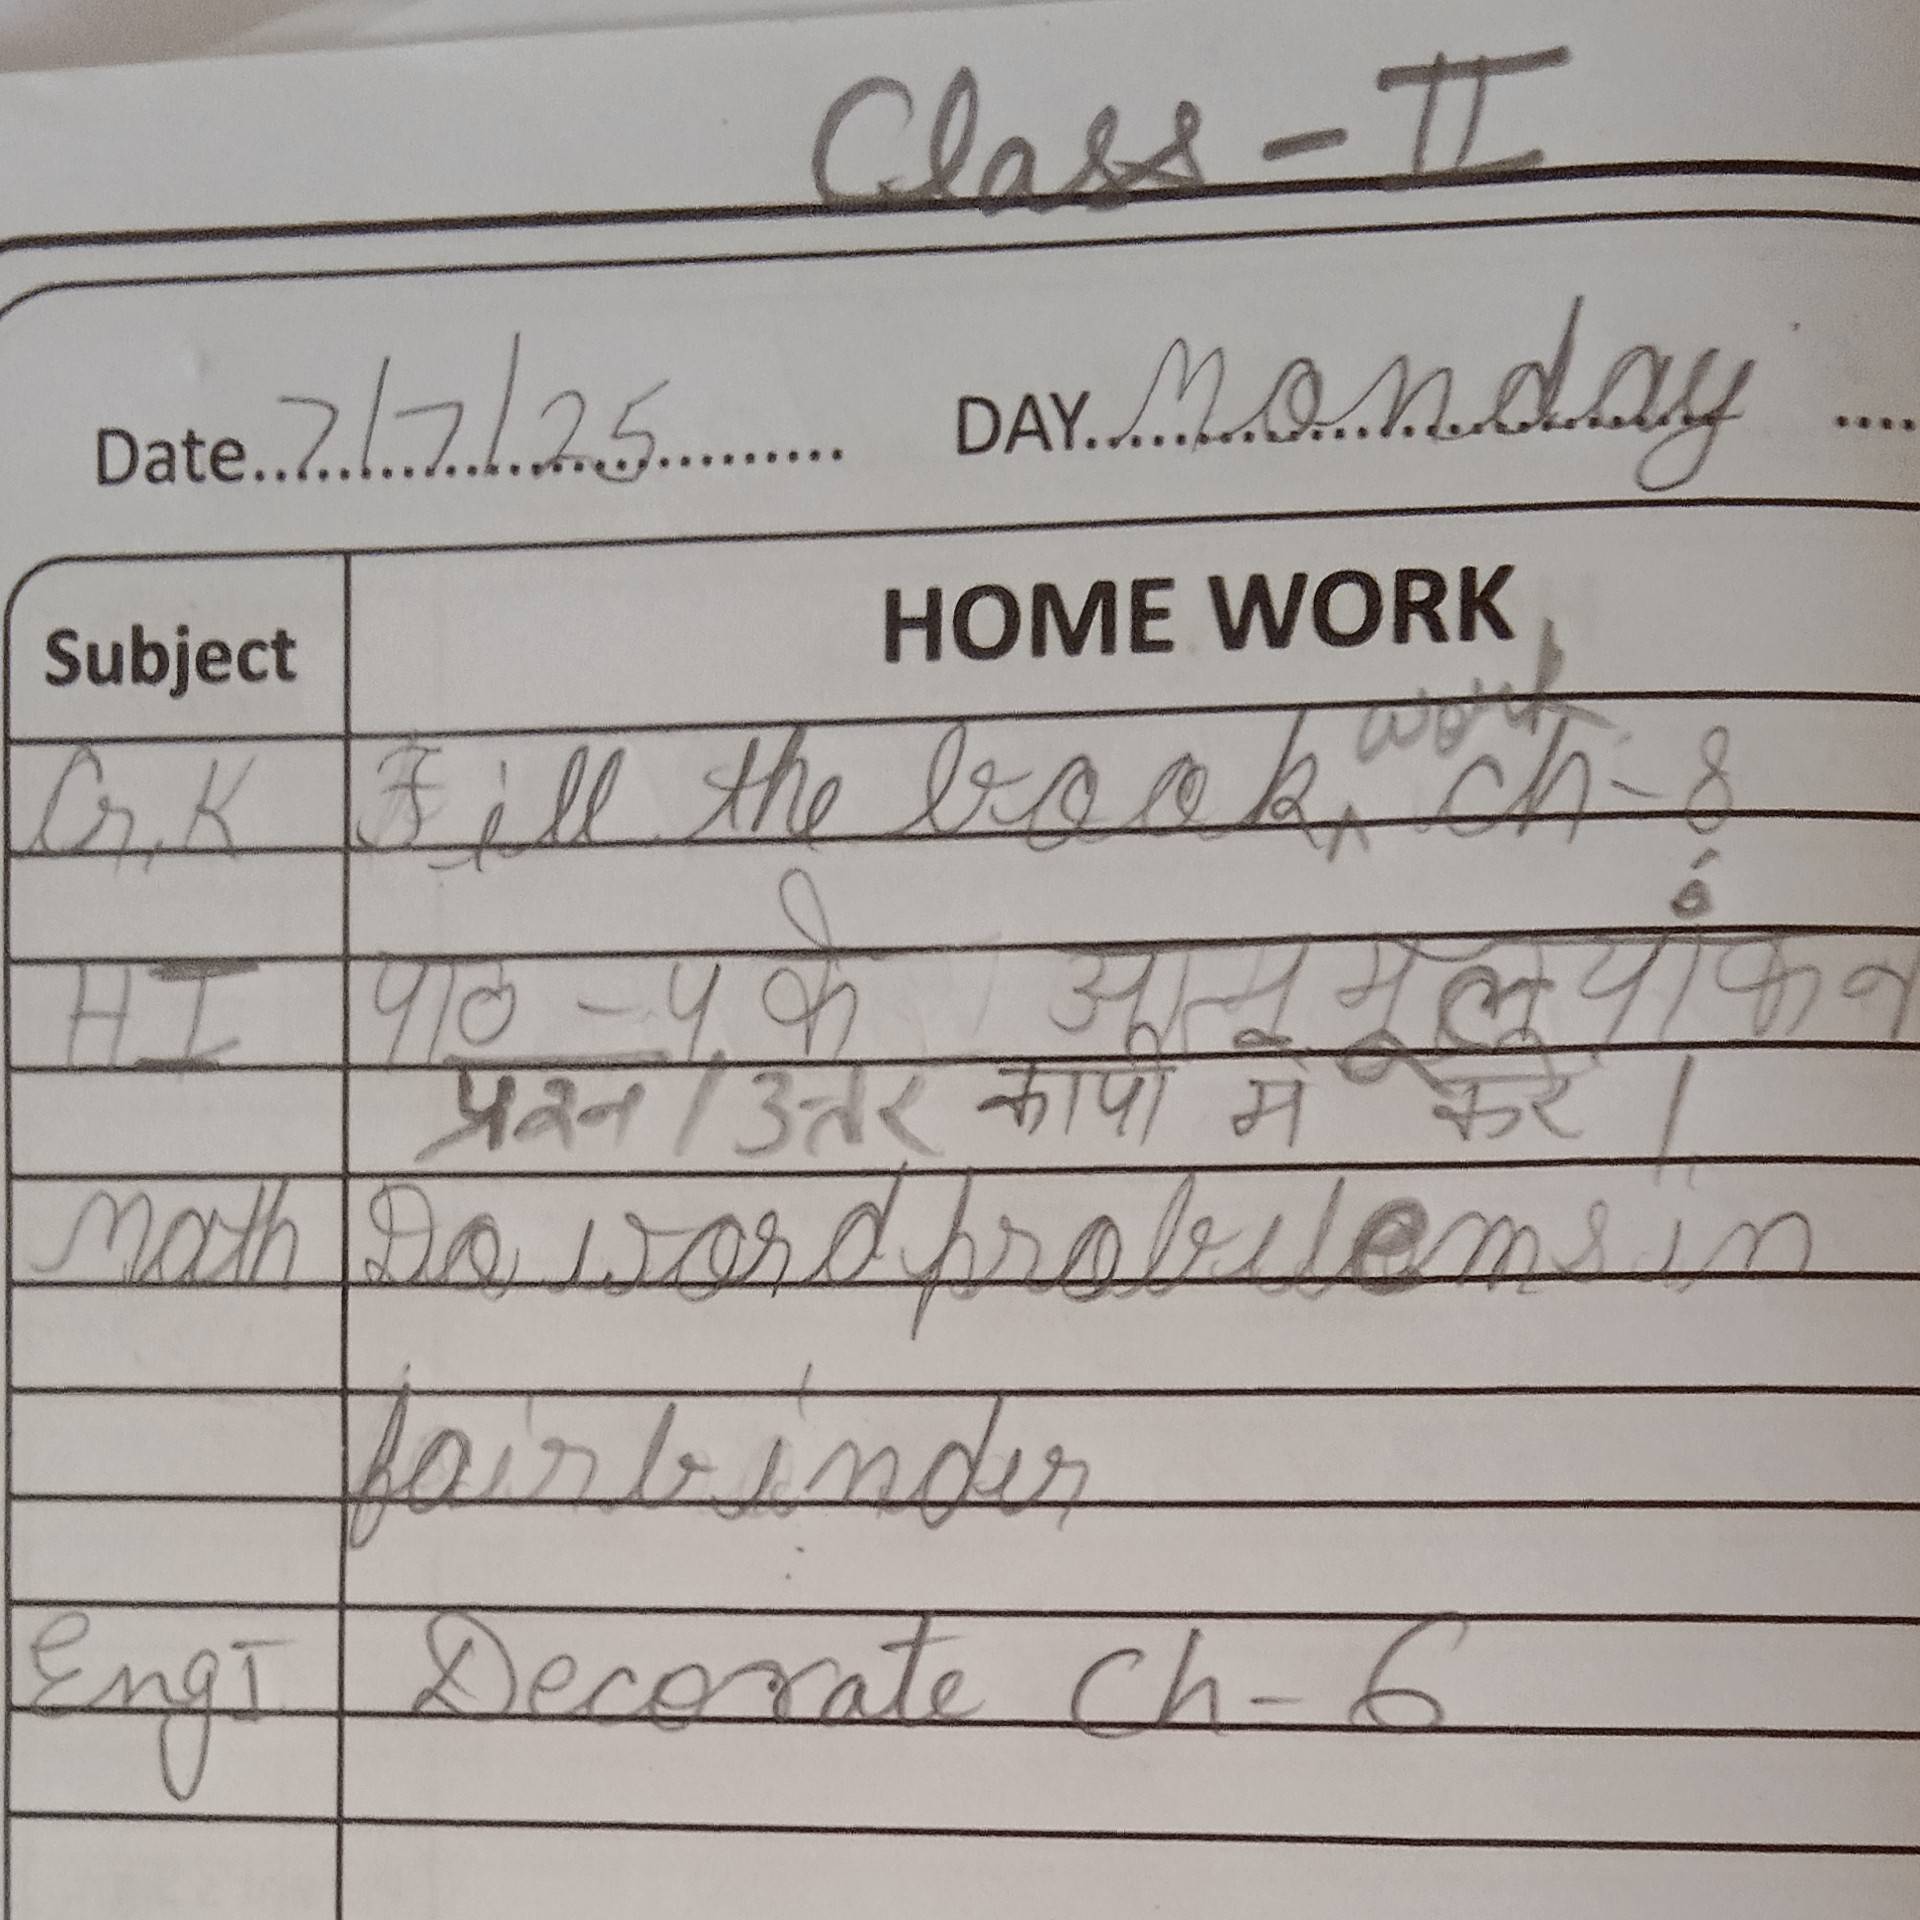 Class - II
Date 7/7/25 DAY Monday
Subject HOME WORK
G.K Fill the book work ch-8
HI पाठ - 5 के आत्म मूल्यांकन
प्रश्न / उत्तर कापी में करें।
Math Do word problems in
fair binder
Eng I Decorate Ch-6